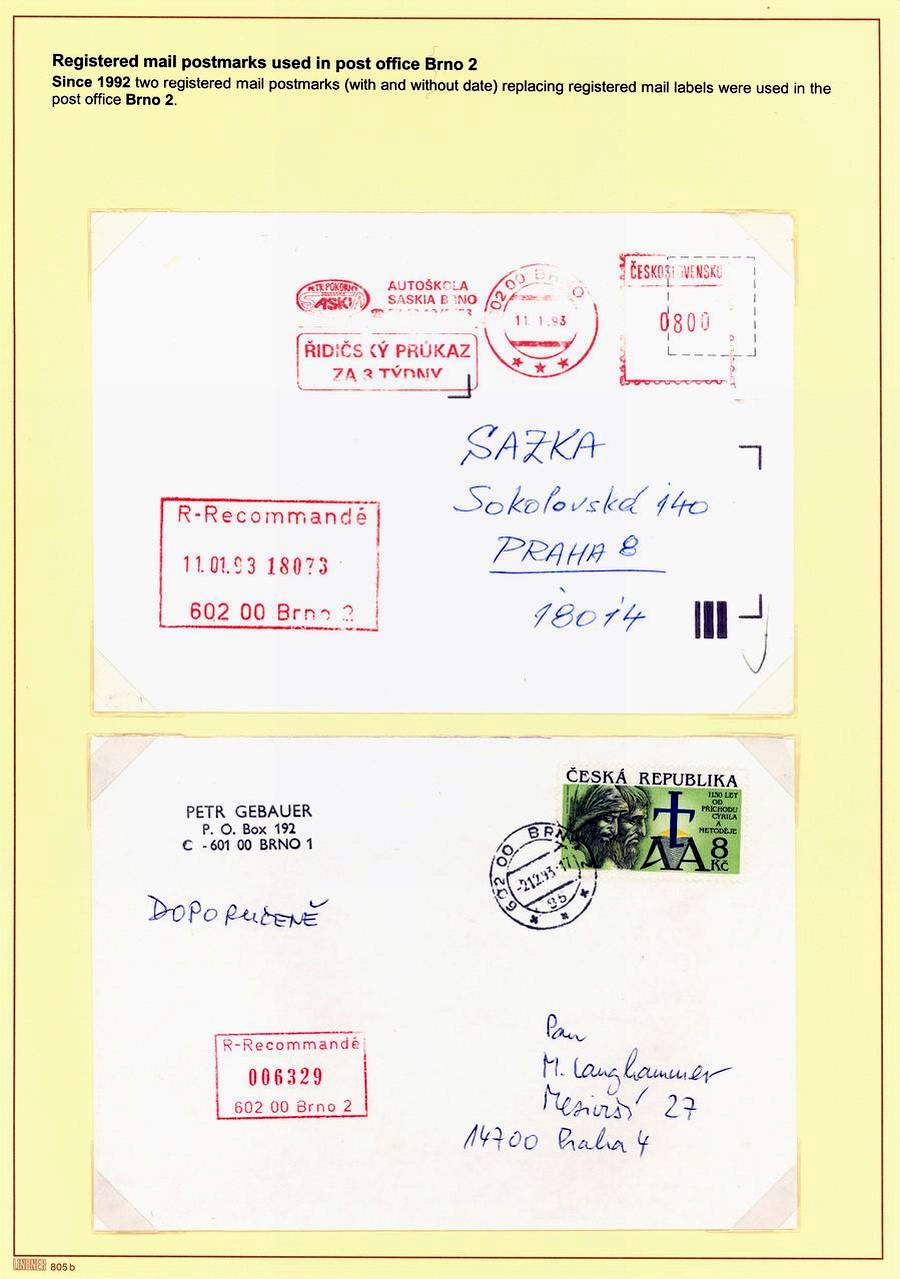 Registered mail postmarks used in post office Brno 2
Since 1992 two registered mail postmarks (with and without date) replacing registered mail labels were used in the
post office Brno 2.
PETR POKORNÝ
SASKIA
AUTOŠKOLA
SASKIA BRNO
ŘIDIČSKÝ PRŮKAZ
ZA 3 TÝDNY
602 00 BRNO
11.1.93
ČESKOSLOVENSKO
0800
SAZKA
Sokolovská 140
PRAHA 8
18014
R-Recommandé
11.01.93 18073
602 00 Brno 2
PETR GEBAUER
P. O. Box 192
C - 601 00 BRNO 1
DOPORUČENĚ
ČESKÁ REPUBLIKA
1130 LET
OD
PŘÍCHODU
CYRILA
A
METODĚJE
8
Kč
602 00 BRNO 2
-2.12.93-17
95
R-Recommandé
006329
602 00 Brno 2
Pan
M. Langhammer
27
14700 Praha 4
LINDNER 805 b